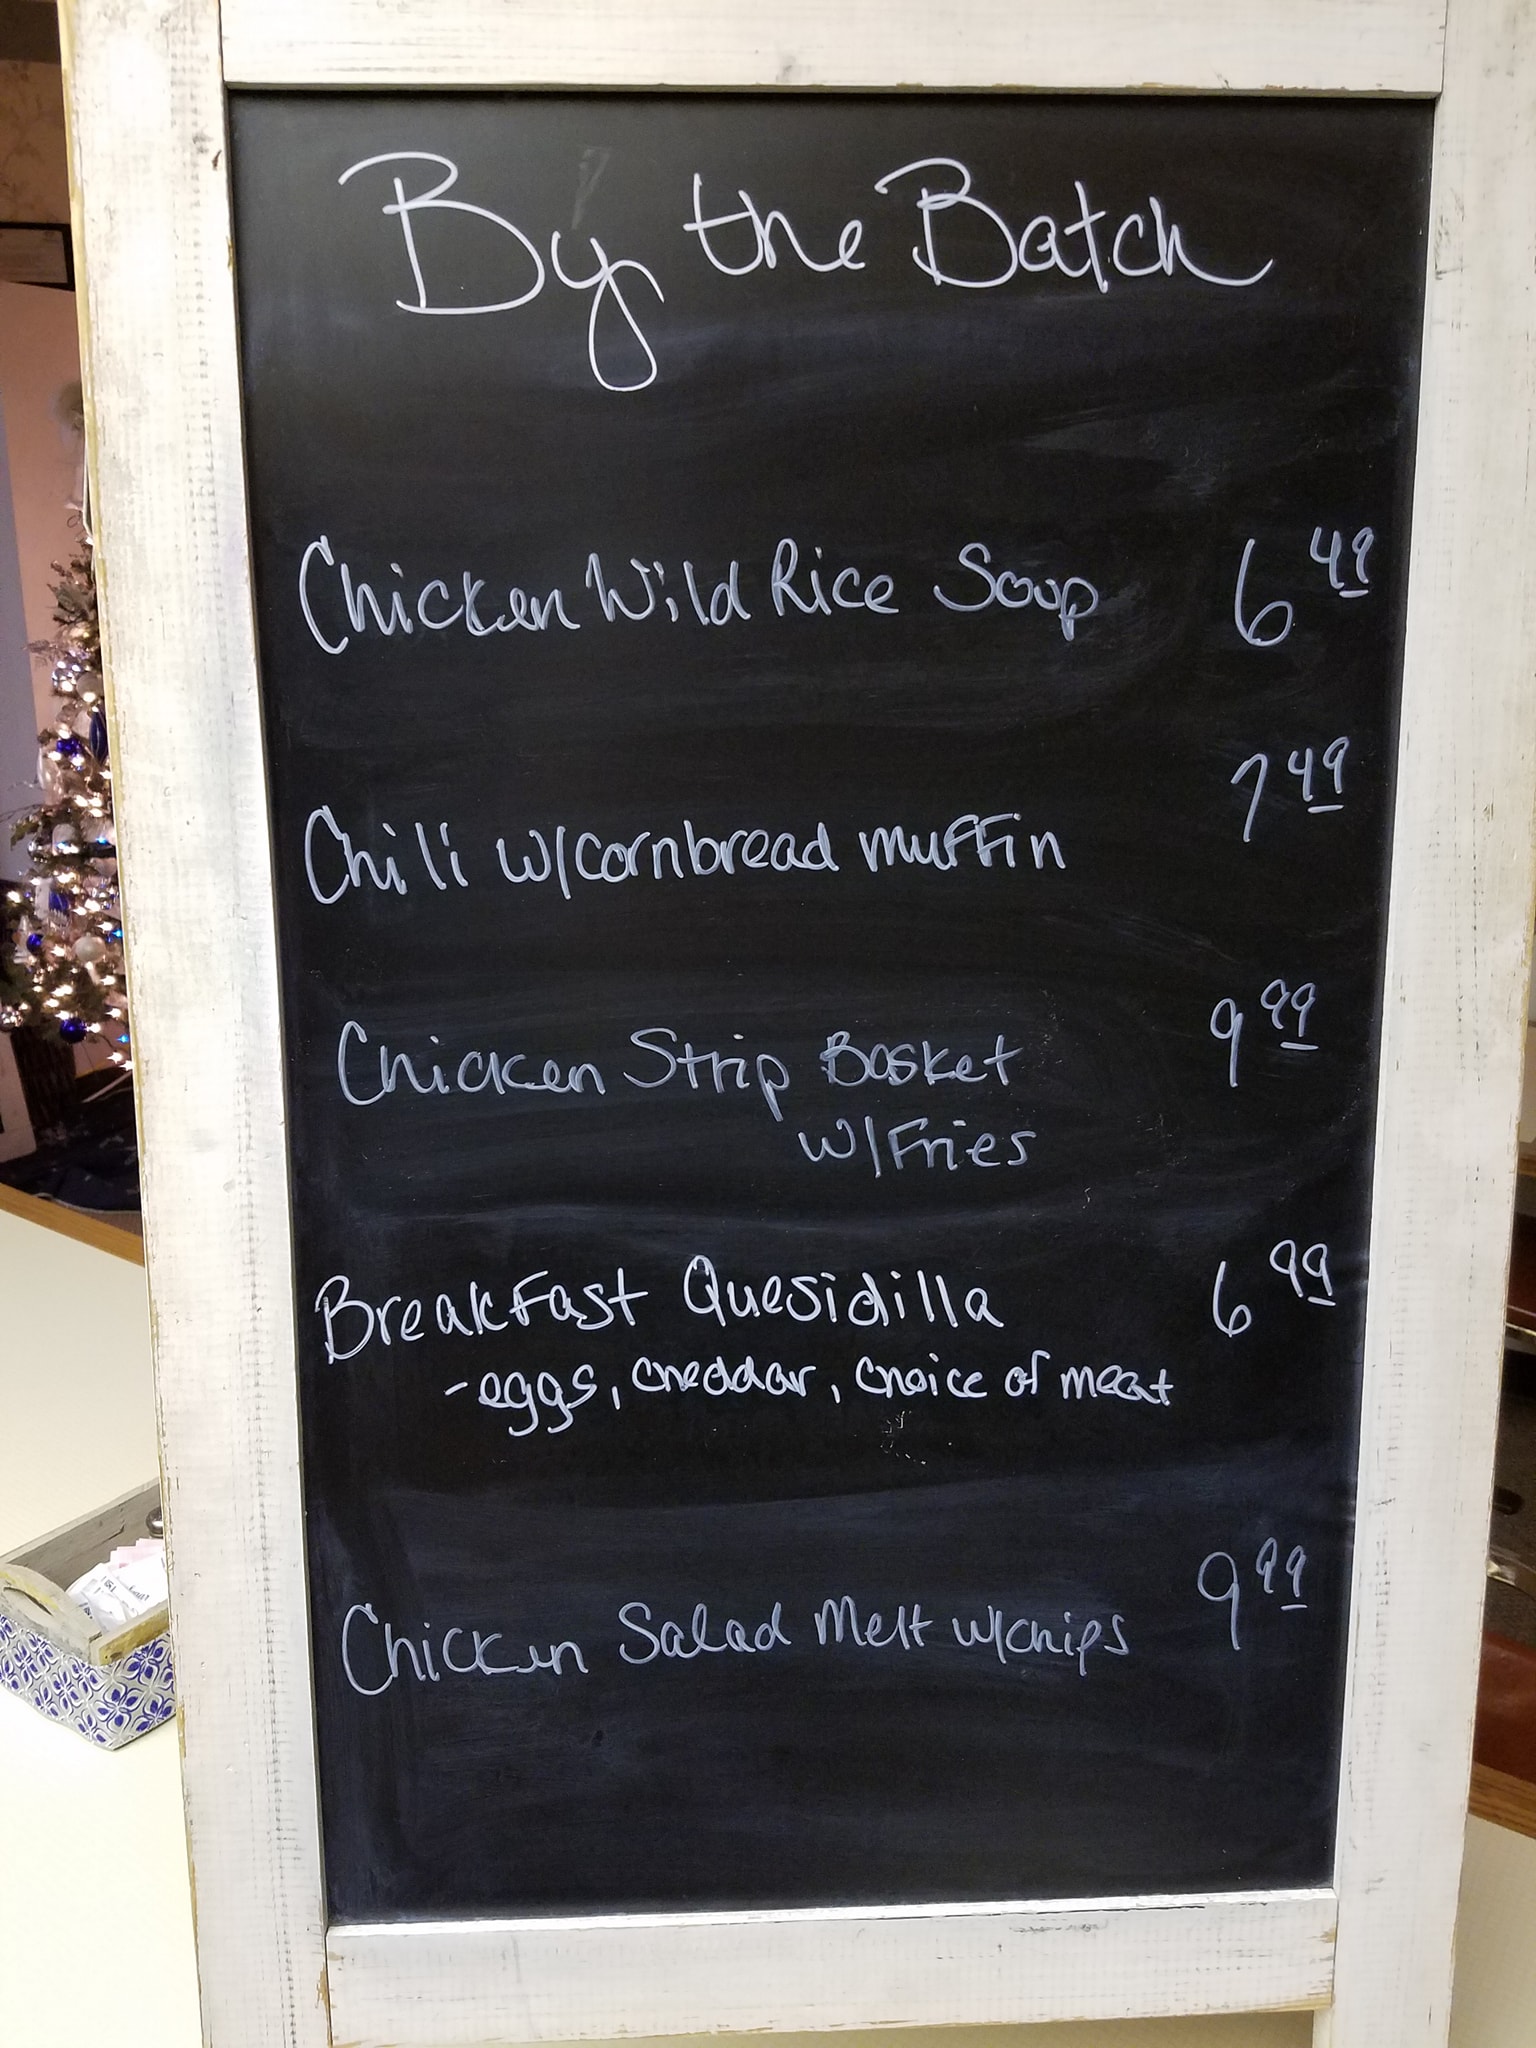 By the Batch
Chicken Wild Rice Soup 6 49
Chili w/cornbread muffin 7 49
Chicken Strip Basket 9 99
w/Fries
Breakfast Quesidilla 6 99
-eggs, cheddar, choice of meat
Chicken Salad Melt w/chips 9 99